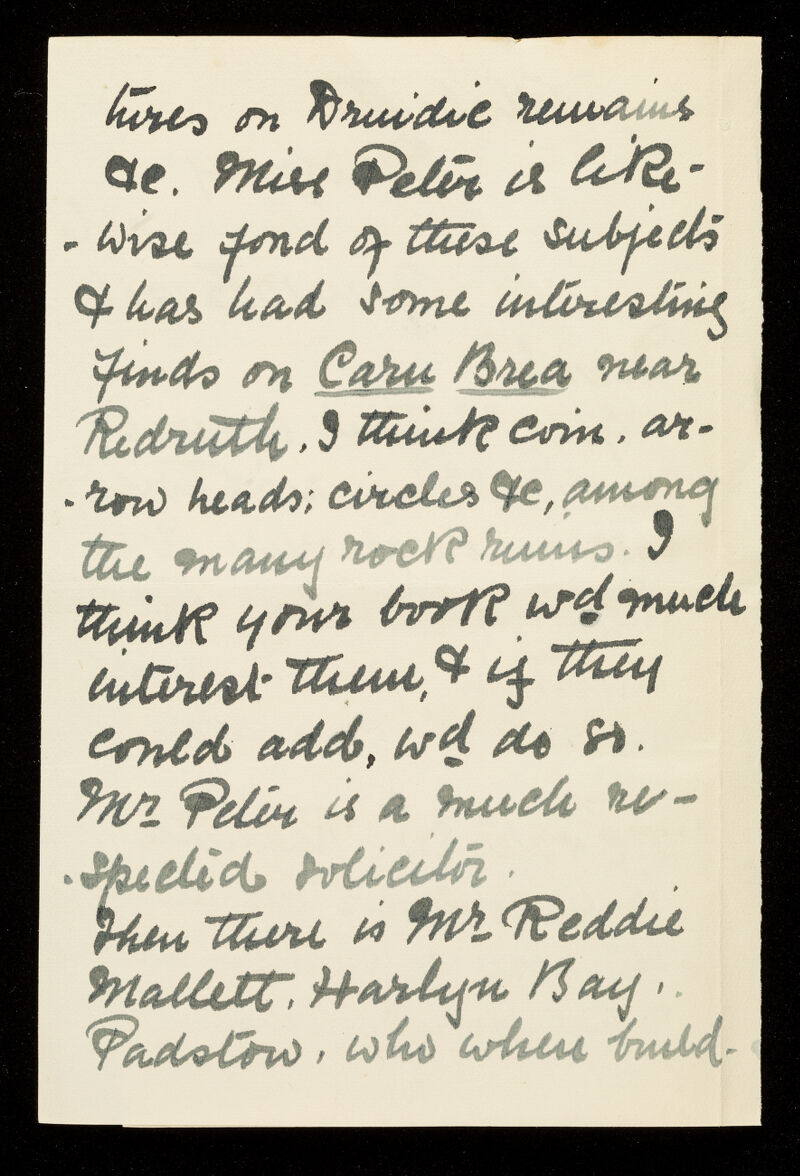 tures on Druidic remains
&c. Miss Peter is like-
- wise fond of these subjects
& has had some interesting
finds on Carn Brea near
Redruth. I think coin. ar-
- row heads; circles &c, among
the many rock ruins. I
think your book wd much
interest them, & if they
could add, wd do so.
Mr Peter is a much re-
- spected solicitor.
Then there is Mr Reddie
Mallett. Harlyn Bay.
Padstow. who when build-